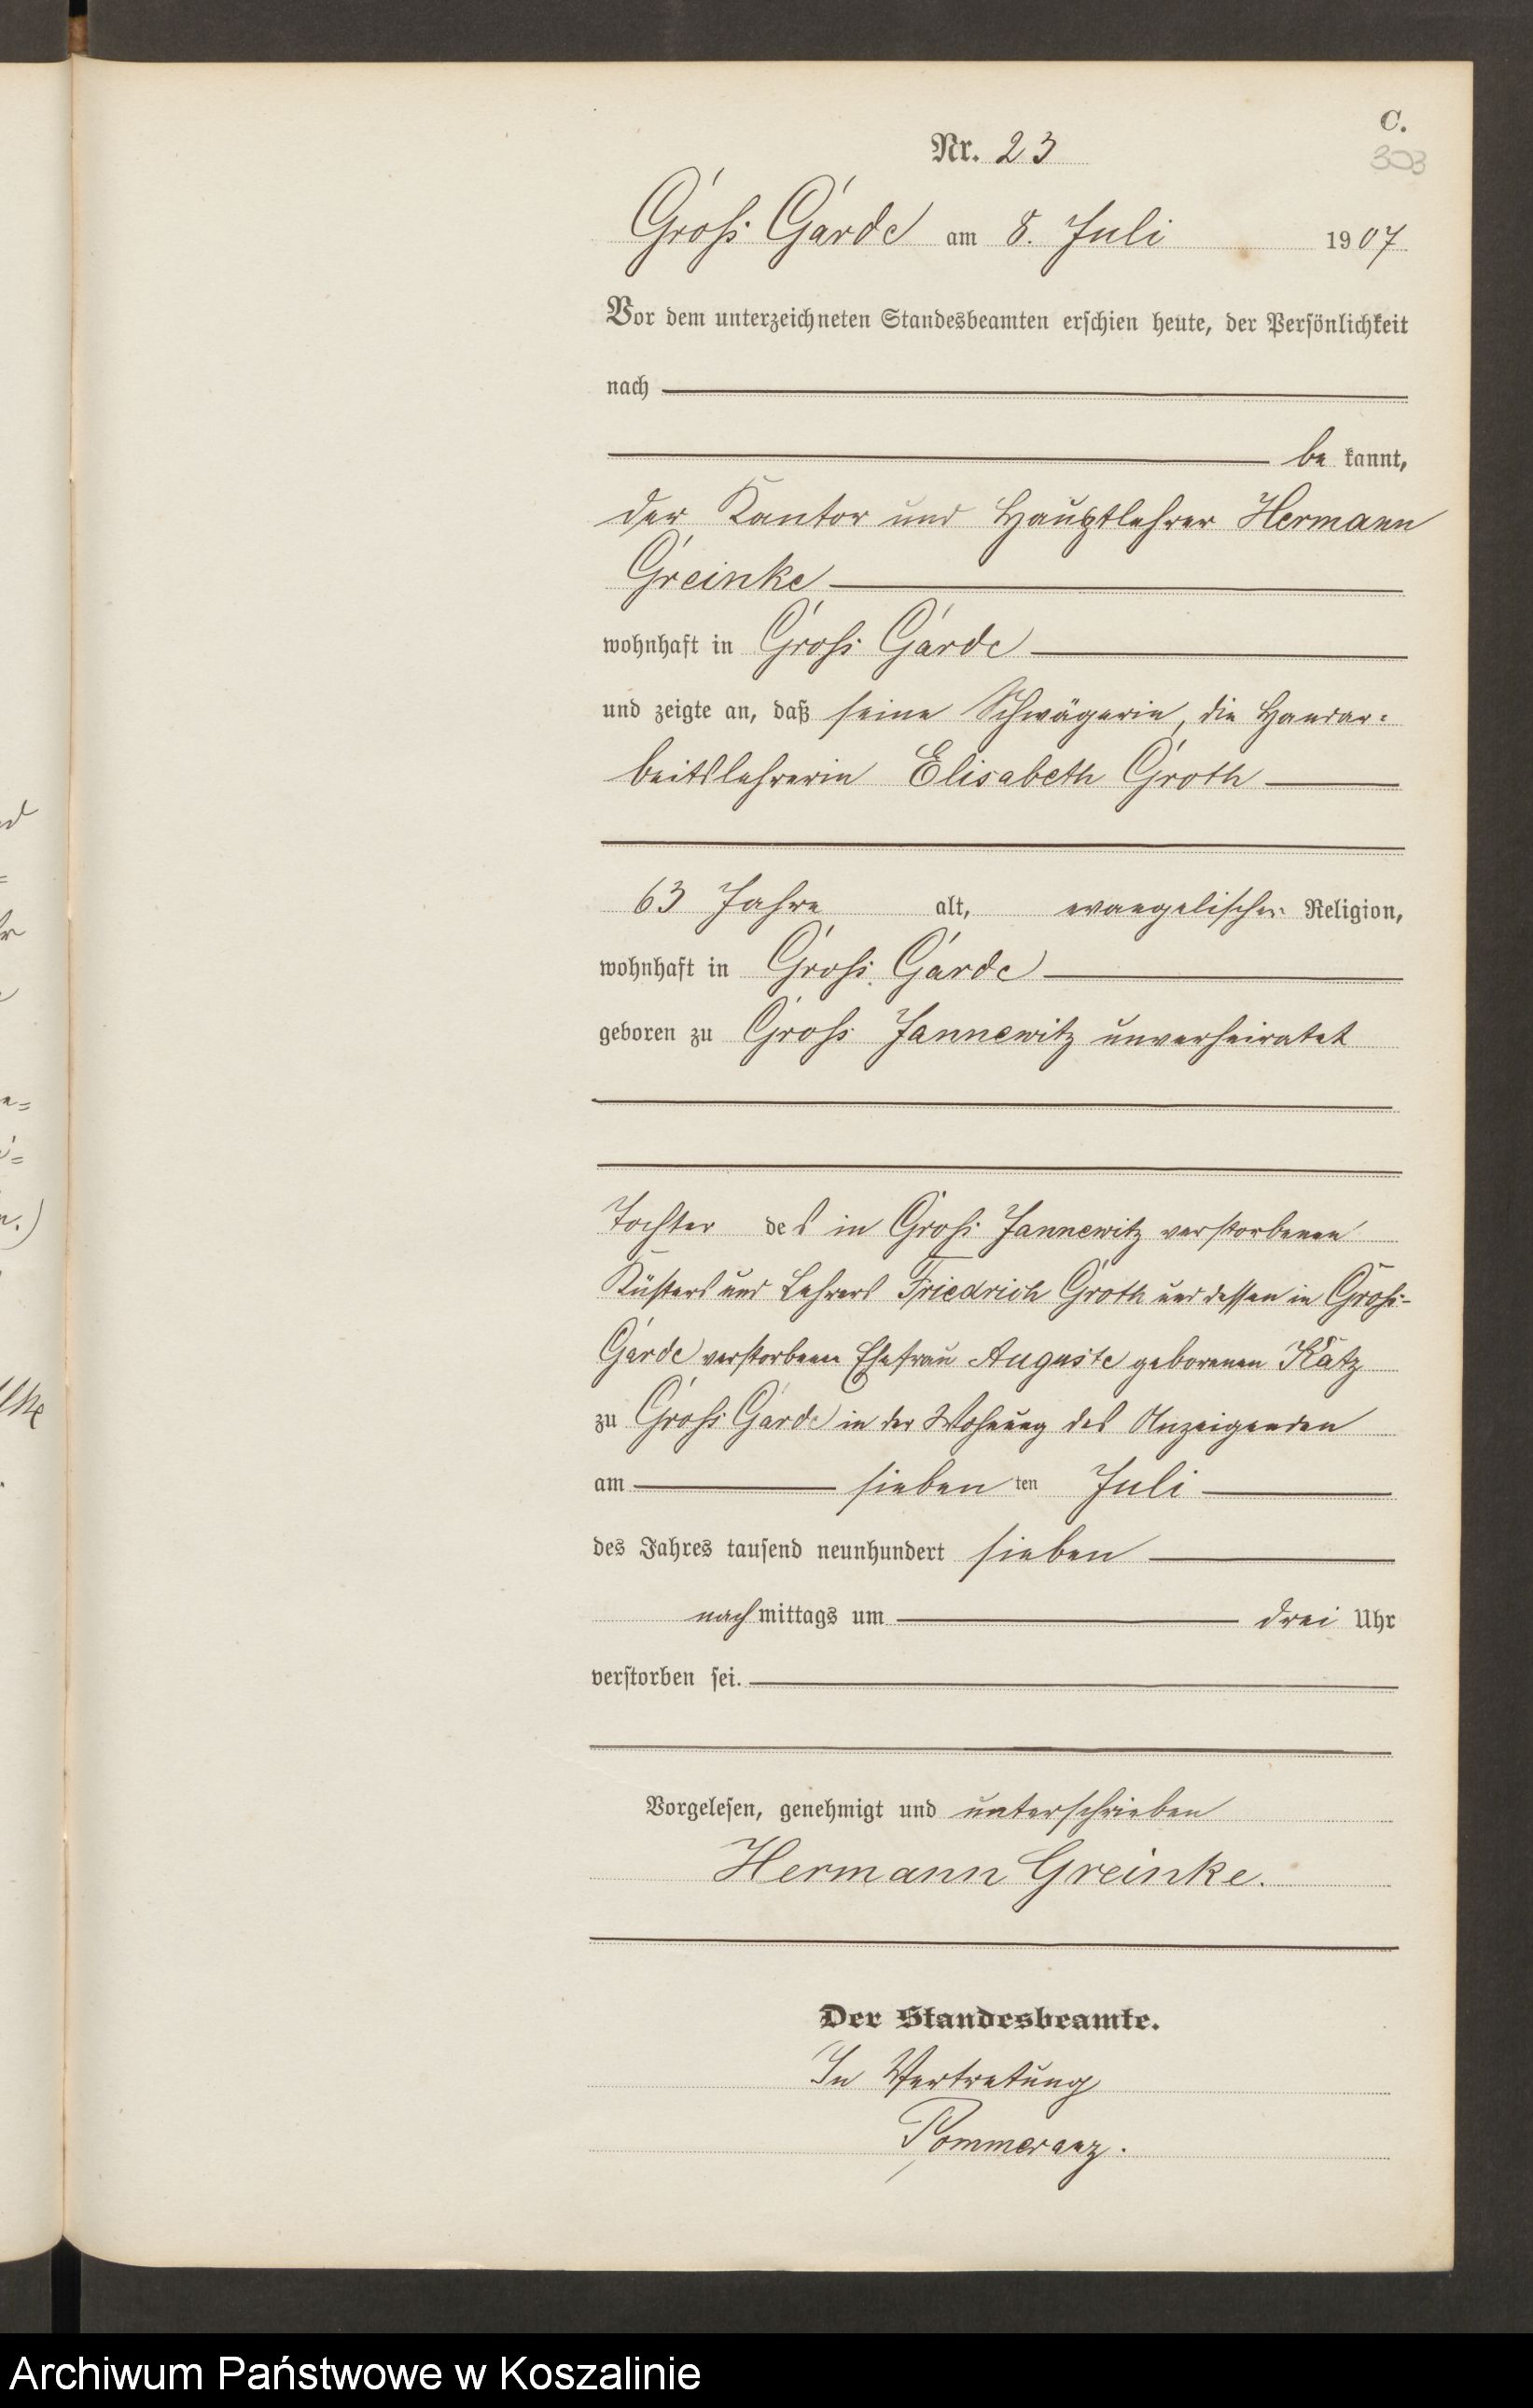 C.
Nr. 23
303
Groß Garde am 8. Juli 1907
Vor dem unterzeichneten Standesbeamten erschien heute, der Persönlichkeit
nach
be kannt,
der Kantor und Hauptlehrer Hermann
Greinke
wohnhaft in Groß Garde
und zeigte an, daß seine Schwägerin, die Handar=
beitslehrerin Elisabeth Groth
63 Jahre alt, evangelischer Religion,
wohnhaft in Groß Garde
geboren zu Groß Jannewitz unverheiratet
Tochter des in Groß Jannewitz verstorbenen
Küsters und Lehrers Friedrich Groth und dessen in Groß-
Garde verstorbenen Ehefrau Auguste geborenen Katz
zu Groß Garde in der Wohnung des Anzeigenden
am sieben ten Juli
des Jahres tausend neunhundert sieben
nach mittags um drei Uhr
verstorben sei.
Vorgelesen, genehmigt und unterschrieben
Hermann Greinke.
Der Standesbeamte.
In Vertretung
Pommeranz.
Archiwum Państwowe w Koszalinie